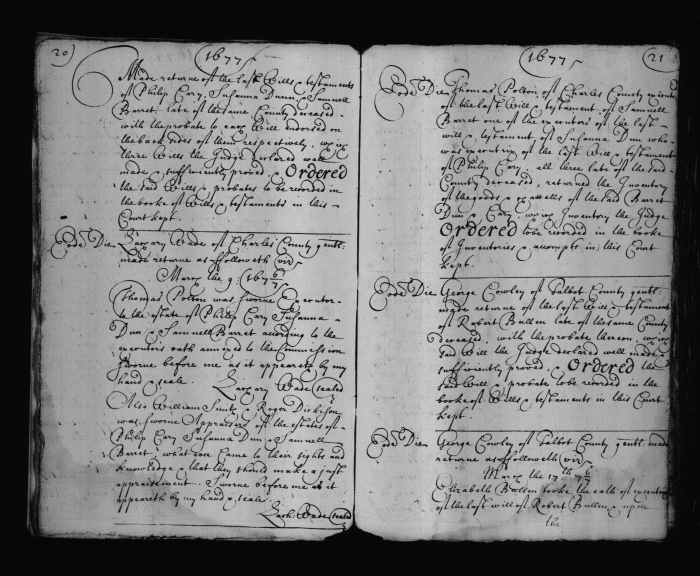 20
1677
Made returne of the last Wills & testaments
of Philip Cary, Susanna Dunn & Samuell
Barret late of the same County deceased,
with the probate to each Will endorsed on
the back sides of them respectively,
three Wills the Judge declared well
made & sufficiently proved. Ordered
the said Wills & probates to be recorded in
the booke of Wills & testaments in this
Court kept.
Eode Die Zacary Wade of Charles County gentl:
made returne as followeth (viz)
March the 9: 167 6/7
Thomas Polton was sworne Executor
to the estate of Philip Cary Susanna
Dun & Samuell Barret according to the
executors oath annexed to the Commission
Sworne before me as it appeareth by my
hand & seale. Zacary Wade (sealed)
Also William Smith & Roger Dickeson
was sworne Appraisers of the estates of
Philip Cary Susanna Dun & Samuell
Barret, what soe Came to their sights and
knowledge & that they should make a just
appraisement. Sworne before me as it
appeareth by my hand & seale
Zach: Wade (sealed)
1677
21
Eode Die Thomas Polton of Charles County
of the last Will & testament of Samuell
Barret one of the executors of the last
will & testament of Susanna Dun who
was executrix of the last Will & testament
of Philip Cary, all three late of the said
County deceased, returned the Inventory
of the goods & of the said Barret
Dun & Cary, Inventory the Judge
Ordered to be recorded in the booke
of Inventories & accompts in this Court
kept.
Eode Die George Cowley of Talbot County gentl:
made returne of the last Will & testament
of Robert Bullen late of the same County
deceased, with the probate thereon,
said Will the Judge declared well made &
sufficiently proved. Ordered the
said Will & probate to be recorded in the
booke of Wills & testaments in this Court
kept.
Eode Die George Cowley of Talbot County gentl: made
returne as followeth (viz)
March the 17th 76/7
Elizabeth Bullen tooke the oath of executrix
of the last will of Robert Bullen & upon
the